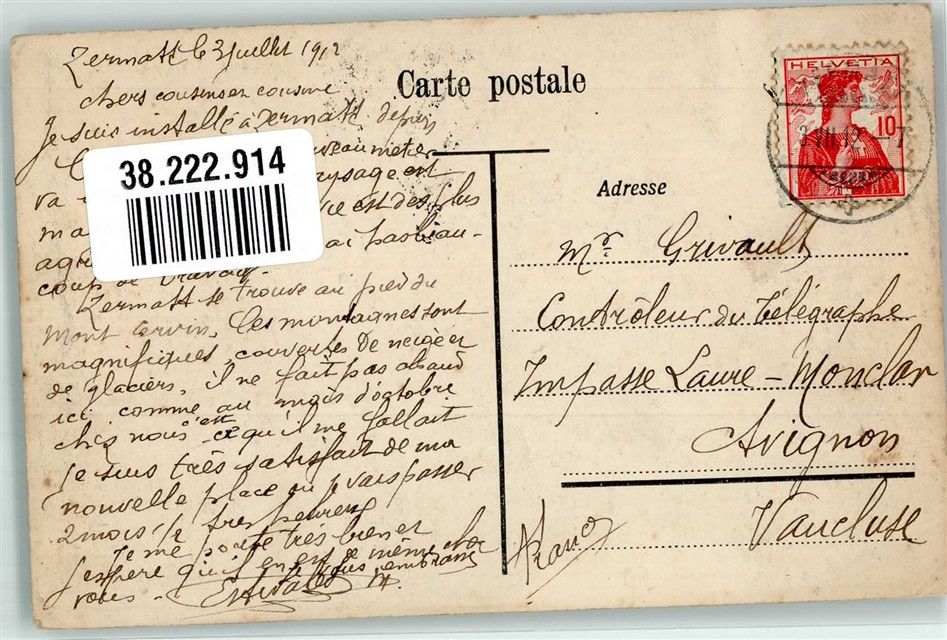 Zermatt le 3 juillet 1912
chers cousins et cousine
Je suis installé a Zermatt depuis
nouveau metier
va paysage est
ma vie est des plus
agré ai pas beau-
coup de travail.
Zermatt se trouve au pied du
Mont Cervin, les montagnes sont
magnifiques, couvertes de neige et
de glaciers, il ne fait pas chaud
ici comme au mois d'octobre
chez nous c'est ce qu'il me fallait
Je suis très satisfait de ma
nouvelle place ou je vais passer
2 mois 1/2 très heureux
Je me porte très bien et
j'espère qu'il en est de même chez
vous - Je vous embrasse
38.222.914
Carte postale
HELVETIA
10
3.VII.12.-7
Adresse
Mr. Grivault
Contrôleur du Télégraphe
Impasse Laure-Monclar
Avignon
Vaucluse
(France)